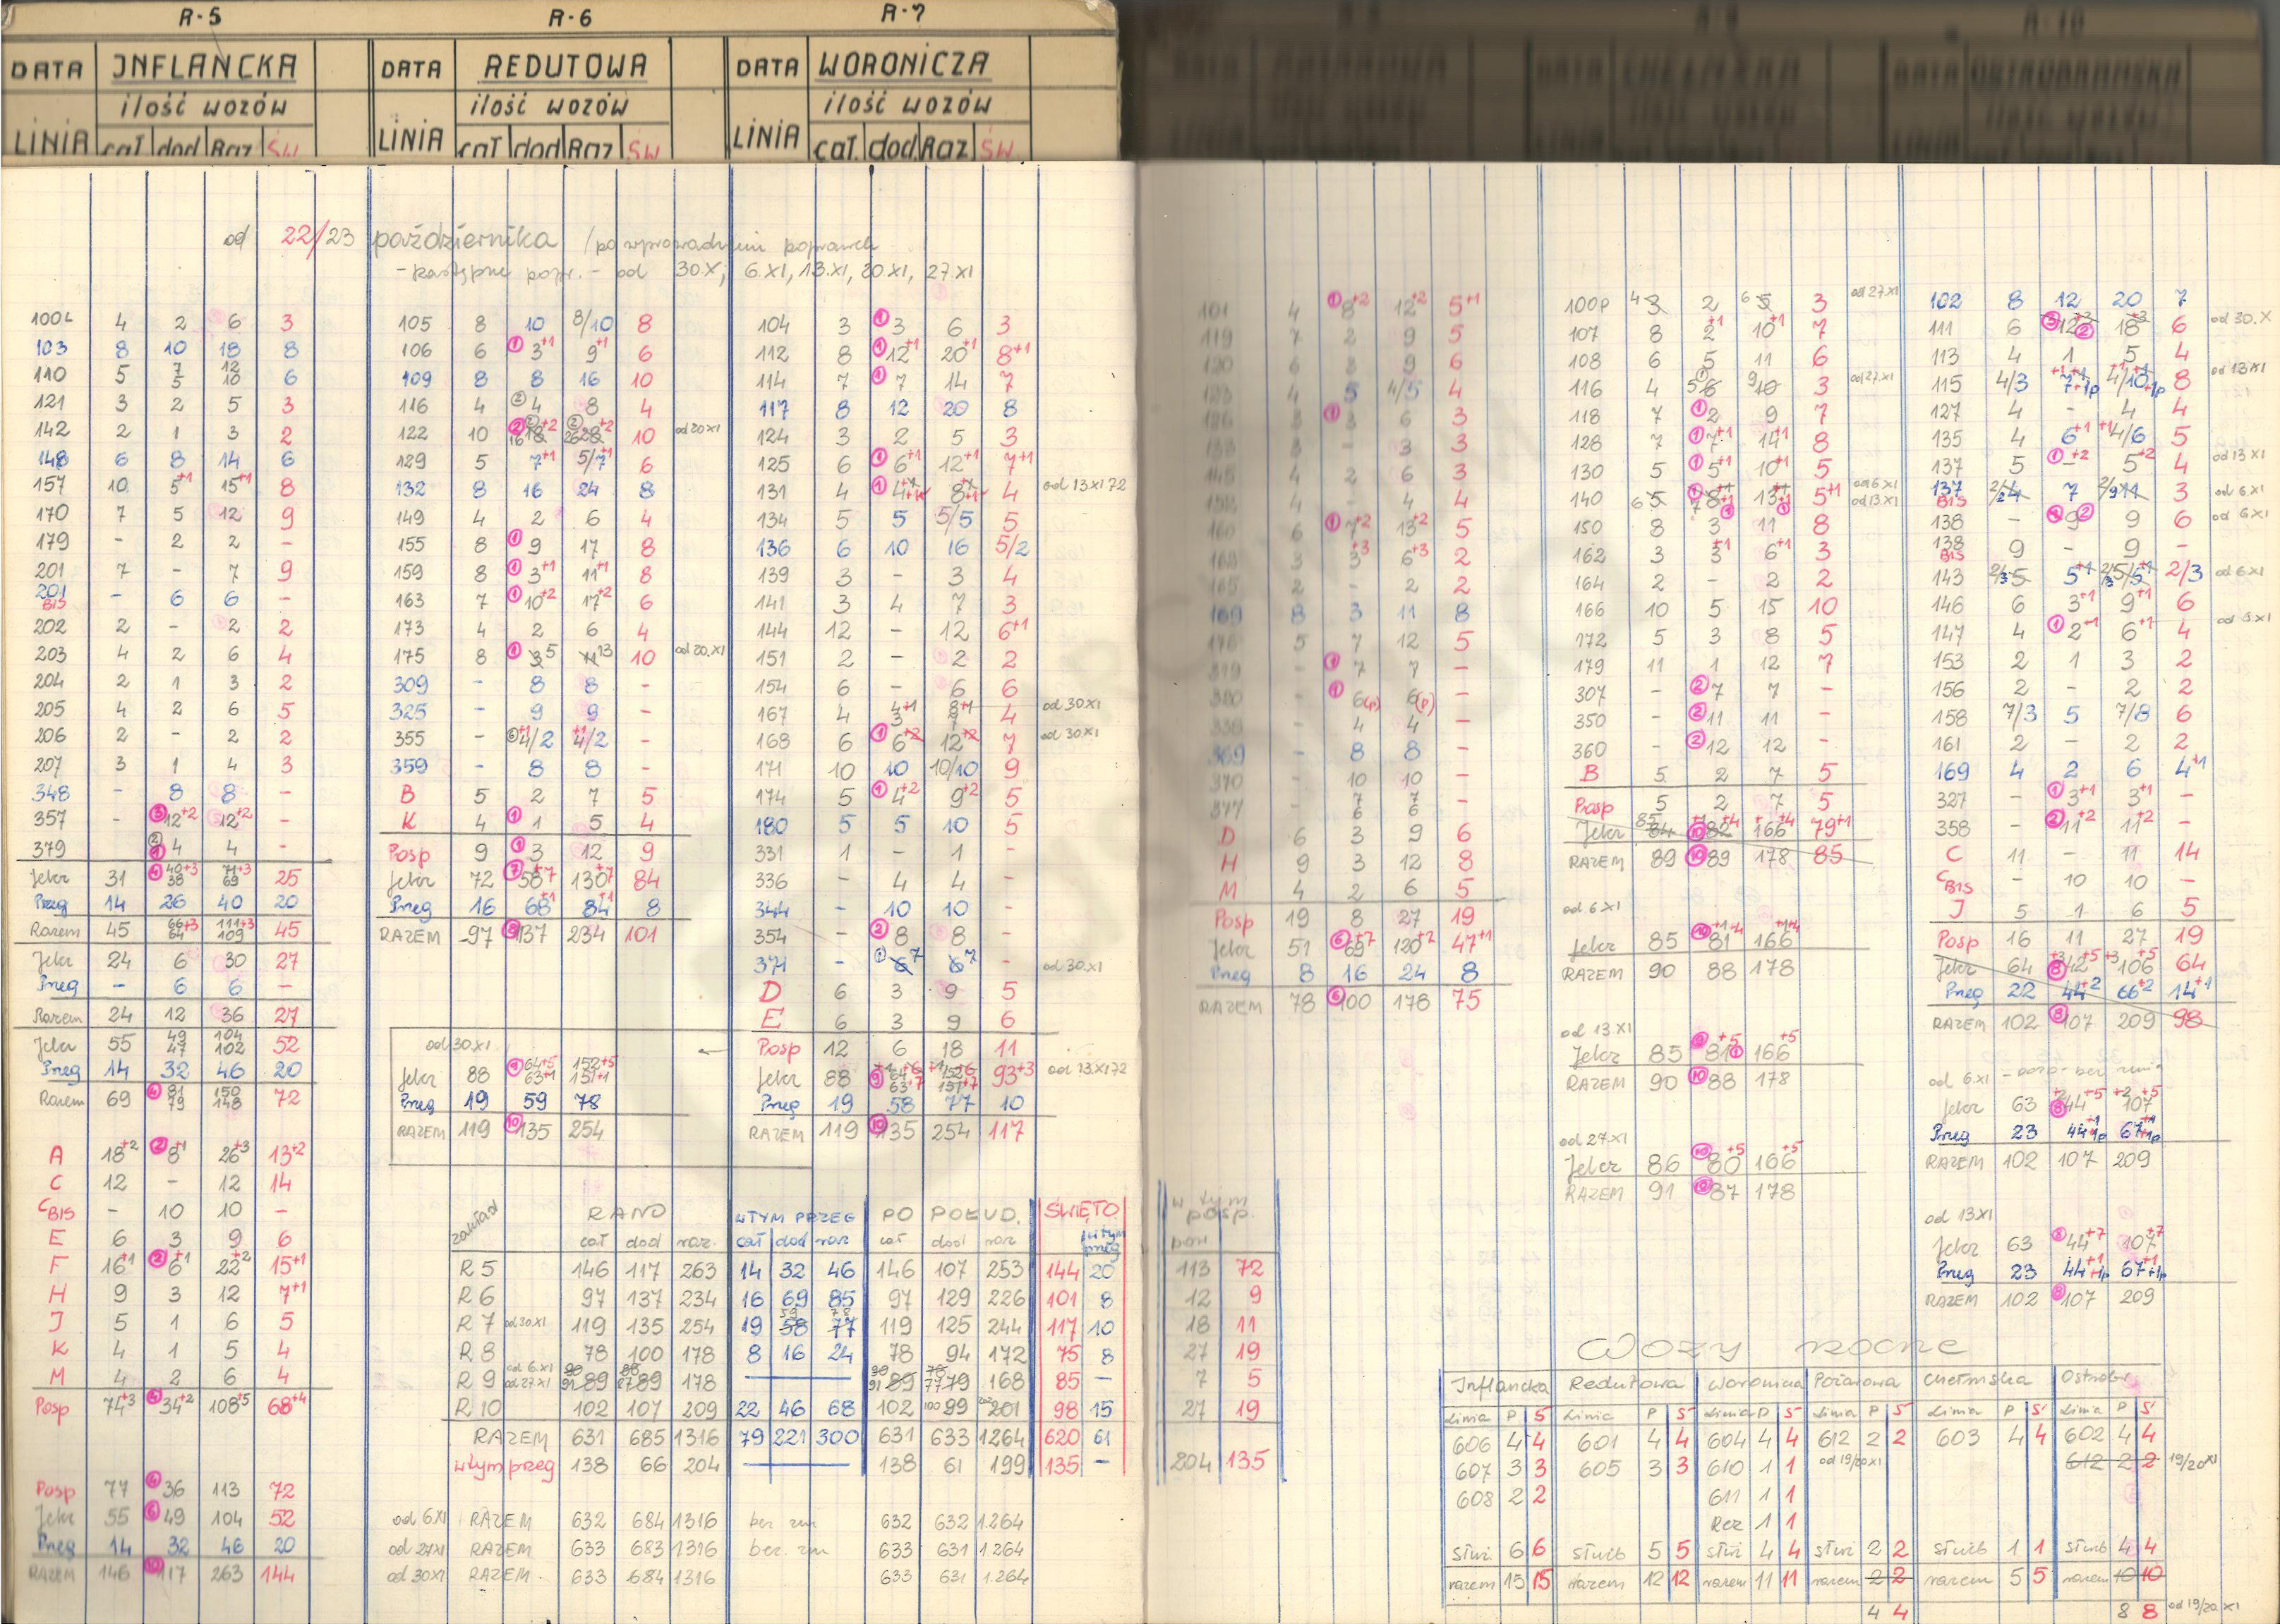 R-5 R-6 R-7
DATA INFLANCKA DATA REDUTOWA DATA WORONICZA
ilość wozów ilość wozów ilość wozów
LINIA cał dod Raz ŚW LINIA cał dod Raz ŚW LINIA cał. dod Raz ŚW
od 22/23 października /po wprowadzeniu poprawek
- następne popr. - od 30.X, 6.XI, 13.XI, 20 XI, 27.XI
100L 4 2 6 3
103 8 10 18 8
110 5 7 5 12 10 6
121 3 2 5 3
142 2 1 3 2
148 6 8 14 6
157 10 5+1 15+1 8
170 7 5 12 9
179 - 2 2 -
201 7 - 7 9
201 BIS - 6 6 -
202 2 - 2 2
203 4 2 6 4
204 2 1 3 2
205 4 2 6 5
206 2 - 2 2
207 3 1 4 3
348 - 8 8 -
357 - ③12+2 12+2 -
379 4 4 -
Jelcz 31 40+3 38 71+3 69 25
Przeg 14 26 40 20
Razem 45 66+3 64 111+3 109 45
Jelcz 24 6 30 27
Przeg - 6 6 -
Razem 24 12 36 27
Jelcz 55 49 47 104 102 52
Przeg 14 32 46 20
Razem 69 81 79 150 148 72
A 18+2 ②8+1 26+3 13+2
C 12 - 12 14
C BIS - 10 10 -
E 6 3 9 6
F 16+1 ②6+1 22+2 15+1
H 9 3 12 7+1
J 5 1 6 5
K 4 1 5 4
M 4 2 6 4
Posp 74+3 34+2 108+5 68+4
Posp 77 36 113 72
Jelcz 55 ⑥49 104 52
Przeg 14 32 46 20
RAZEM 146 117 263 144
105 8 10 8/10 8
106 6 ①3+1 9+1 6
109 8 8 16 10
116 4 ②4 8 4
122 10 16 18+2 26 28+2 10 od 20 XI
129 5 7+1 5/7+1 6
132 8 16 24 8
149 4 2 6 4
155 8 ①9 17 8
159 8 ①3+1 11+1 8
163 7 ①10+2 17+2 6
173 4 2 6 4
175 8 ①3 5 11 13 10 od 20.XI
309 - 8 8 -
325 - 9 9 -
355 - 4/2 4/2 -
359 - 8 8 -
B 5 2 7 5
K 4 ①1 5 4
Posp 9 ①3 12 9
Jelcz 72 ⑦58+7 130+7 84
Przeg 16 68+1 84+1 8
RAZEM 97 ⑧137 234 101
od 30 XI
Jelcz 88 ⑨64+5 63+1 152+5 151+1
Przeg 19 59 78
RAZEM 119 ⑩135 254
104 3 ①3 6 3
112 8 ①12+1 20+1 8+1
114 7 ①7 14 7
117 8 12 20 8
124 3 2 5 3
125 6 ①6+1 12+1 7+1
131 4 ①4 8 4 od 13 XI 72
134 5 5 5/5 5
136 6 10 16 5/2
139 3 - 3 4
141 3 4 7 3
144 12 - 12 6+1
151 2 - 2 2
154 6 - 6 6
167 4 4+1 3 8+1 7 4 od 30 XI
168 6 ①6+2 12+2 7 od 30 XI
171 10 10 10/10 9
174 5 ①4+2 9+2 5
180 5 5 10 5
331 1 - 1 -
336 - 4 4 -
344 - 10 10 -
354 - ②8 8 -
371 - ①6 7 6 7 - od 30.XI
D 6 3 9 5
E 6 3 9 6
Posp 12 6 18 11
Jelcz 88 93+3 od 13 XI 72
Przeg 19 58 77 10
RAZEM 119 135 254 117
zakład RANO W TYM PRZEG PO POŁUD. ŚWIĘTO w tym posp.
cał dod raz. cał dod raz cał dod raz w tym przeg
R 5 146 117 263 14 32 46 146 107 253 144 20 113 72
R 6 97 137 234 16 69 85 97 129 226 101 8 12 9
R 7 od 30 XI 119 135 254 19 59 58 78 77 119 125 244 117 10 18 11
R 8 78 100 178 8 16 24 78 94 172 75 8 27 19
R 9 od 6.XI od 27 XI 90 91 89 88 87 89 178 90 91 89 78 77 79 168 85 - 7 5
R 10 102 107 209 22 46 68 102 100 99 202 201 98 15 27 19
RAZEM 631 685 1316 79 221 300 631 633 1264 620 61
w tym przeg 138 66 204 138 61 199 135 - 204 135
od 6 XI RAZEM 632 684 1316 bez zm 632 632 1.264
od 27 XI RAZEM 633 683 1316 bez. zm 633 631 1.264
od 30 XI RAZEM. 633 684 1316 633 631 1.264
101 4 ①8+2 12+2 5+1
119 7 2 9 5
120 6 3 9 6
123 4 5 4/5 4
126 3 ①3 6 3
133 3 - 3 3
145 4 2 6 3
152 4 - 4 4
160 6 ①7+2 13+2 5
162 3 3+3 6+3 2
165 2 - 2 2
169 8 3 11 8
176 5 7 12 5
319 - ①7 7 -
320 - ①6(p) 6(p) -
338 - 4 4 -
369 - 8 8 -
370 - 10 10 -
377 - 7 6 7 6 -
D 6 3 9 6
H 9 3 12 8
M 4 2 6 5
Posp 19 8 27 19
Jelcz 51 ⑥69+7 120+2 47+1
Przeg 8 16 24 8
RAZEM 78 ⑥100 178 75
100P 4 3 2 6 5 3 od 27 XI
107 8 2+1 10+1 7
108 6 5 11 6
116 4 5 6 9 10 3 od 27.XI
118 7 ①2 9 7
128 7 ①7+1 14+1 8
130 5 ①5+1 10+1 5
140 6 5 7 8 13 5+1 od 6 XI od 13.XI
150 8 3 11 8
162 3 3+1 6+1 3
164 2 - 2 2
166 10 5 15 10
172 5 3 8 5
179 11 1 12 7
307 - ②7 7 -
350 - ②11 11 -
360 - ②12 12 -
B 5 2 7 5
Posp 5 2 7 5
Jelcz 85 84 ⑩82+4 166+4 79+1
RAZEM 89 ⑩89 178 85
od 6 XI
Jelcz 85 ⑩81 166
RAZEM 90 88 178
od 13 XI
Jelcz 85 81 166+5
RAZEM 90 ⑩88 178
od 27 XI
Jelcz 86 ⑩80+5 166+5
RAZEM 91 ⑩87 178
102 8 12 20 7
111 6 12 18 6 od 30.X
113 4 1 5 4
115 4/3 7 4/10 8 od 13 XI
127 4 - 4 4
135 4 6+1 4/6 5
137 5 ①-+2 5+2 4 od 13 XI
137 BIS 7 3 od 6.XI
138 - 9 9 6 od 6 XI
138 BIS 9 - 9 -
143 5+1 2/3 od 6 XI
146 6 3+1 9+1 6
147 4 ①2+1 6+1 4
153 2 1 3 2
156 2 - 2 2
158 7/3 5 7/8 6
161 2 - 2 2
169 4 2 6 4+1
327 - ①3+1 3+1 -
358 - ②11+2 11+2 -
C 11 - 11 14
C BIS - 10 10 -
J 5 1 6 5
Posp 16 11 27 19
Jelcz 64 42+5 106+5 64
Przeg 22 44+2 66+2 14+1
RAZEM 102 ⑧107 209 98
od 6.XI - posp - bez zmian
Jelcz 63 ⑧44+5 107+5
Przeg 23 44 67
RAZEM 102 107 209
od 13XI
Jelcz 63 ⑧44+7 107+7
Przeg 23 44 67
RAZEM 102 ⑧107 209
Wozy nocne
Inflancka Redutowa Woronicza Pożarowa Chełmska Ostrobr.
Linia P Ś Linia P Ś Linia P Ś Linia P Ś Linia P Ś Linia P Ś
606 4 4 601 4 4 604 4 4 612 2 2 603 4 4 602 4 4
607 3 3 605 3 3 610 1 1 od 19/20 XI 612 2 2 19/20 XI
608 2 2 611 1 1
Rez 1 1
służ. 6 6 służb 5 5 służ 4 4 służ 2 2 służb 1 1 służb 4 4
razem 15 15 razem 12 12 razem 11 11 razem 2 2 razem 5 5 razem 10 10
4 4 8 8 od 19/20 XI